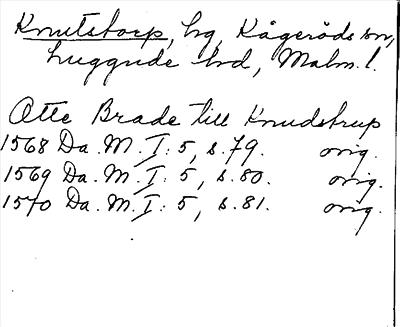 Knutstorp, hg, Kågeröds sn,
Luggude hrd, Malm. l.
Otte Brade till Knudstrup
1568 Da. M. I: 5, s. 79. orig.
1569 Da. M. I: 5, s. 80. orig.
1570 Da. M. I: 5, s. 81. orig.